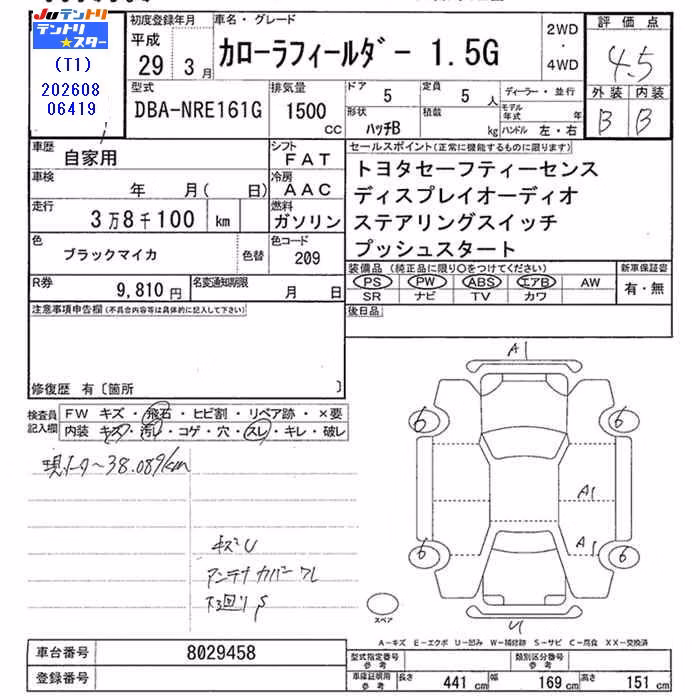 Juテントリ
テントリ★スター
(T1)
202608
06419
初度登録年月
平成
29 3月
車名・グレード
カローラフィールダー 1.5G
2WD
・
4WD
評価点
4.5
外装 内装
B B
型式
DBA-NRE161G
排気量
1500
cc
ドア
5
定員
5 人
形状
ハッチB
積載
kg
ディーラー・並行
モデル年式 年
ハンドル 左・右
車歴
自家用
シフト
FAT
車検
年 月( 日)
冷房
AAC
走行
3万8千100 km
燃料
ガソリン
色
ブラックマイカ
色替
色コード
209
R券
9,810 円
名変通知期限
月 日
セールスポイント(正常に機能するものに限ります)
トヨタセーフティーセンス
ディスプレイオーディオ
ステアリングスイッチ
プッシュスタート
装備品(純正品に限り○をつけてください)
PS PW ABS エアB AW
SR ナビ TV カワ
新車保証書
有・無
後日品
注意事項申告欄(不具合内容等は具体的に記入して下さい)
修復歴 有〔箇所 〕
検査員
記入欄
FW キズ・飛石・ヒビ割・リペア跡・×要
内装 キズ・汚レ・コゲ・穴・スレ・キレ・破レ
現メーター38.089km
キズU
アンテナカバーワレ
下回りS
A1
6
6
A1
A1
6
6
U
スペア
A-キズ E-エクボ U-凹み W-補修跡 S-サビ C-腐食 XX-交換済
車台番号
8029458
登録番号
型式指定番号
参考
類別区分番号
参考
車庫証明用
参考
長さ 441 cm 幅 169 cm 高さ 151 cm